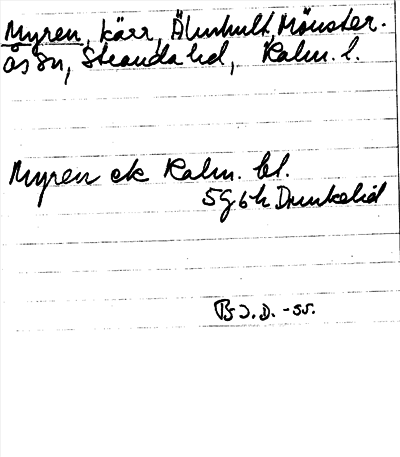 Myren, kärr, Älmhult, Mönster-
ås sn, Stranda hd, Kalm. l.
Myren ek Kalm. bl.
5g 6h Drunkelid
B J. D. -55.